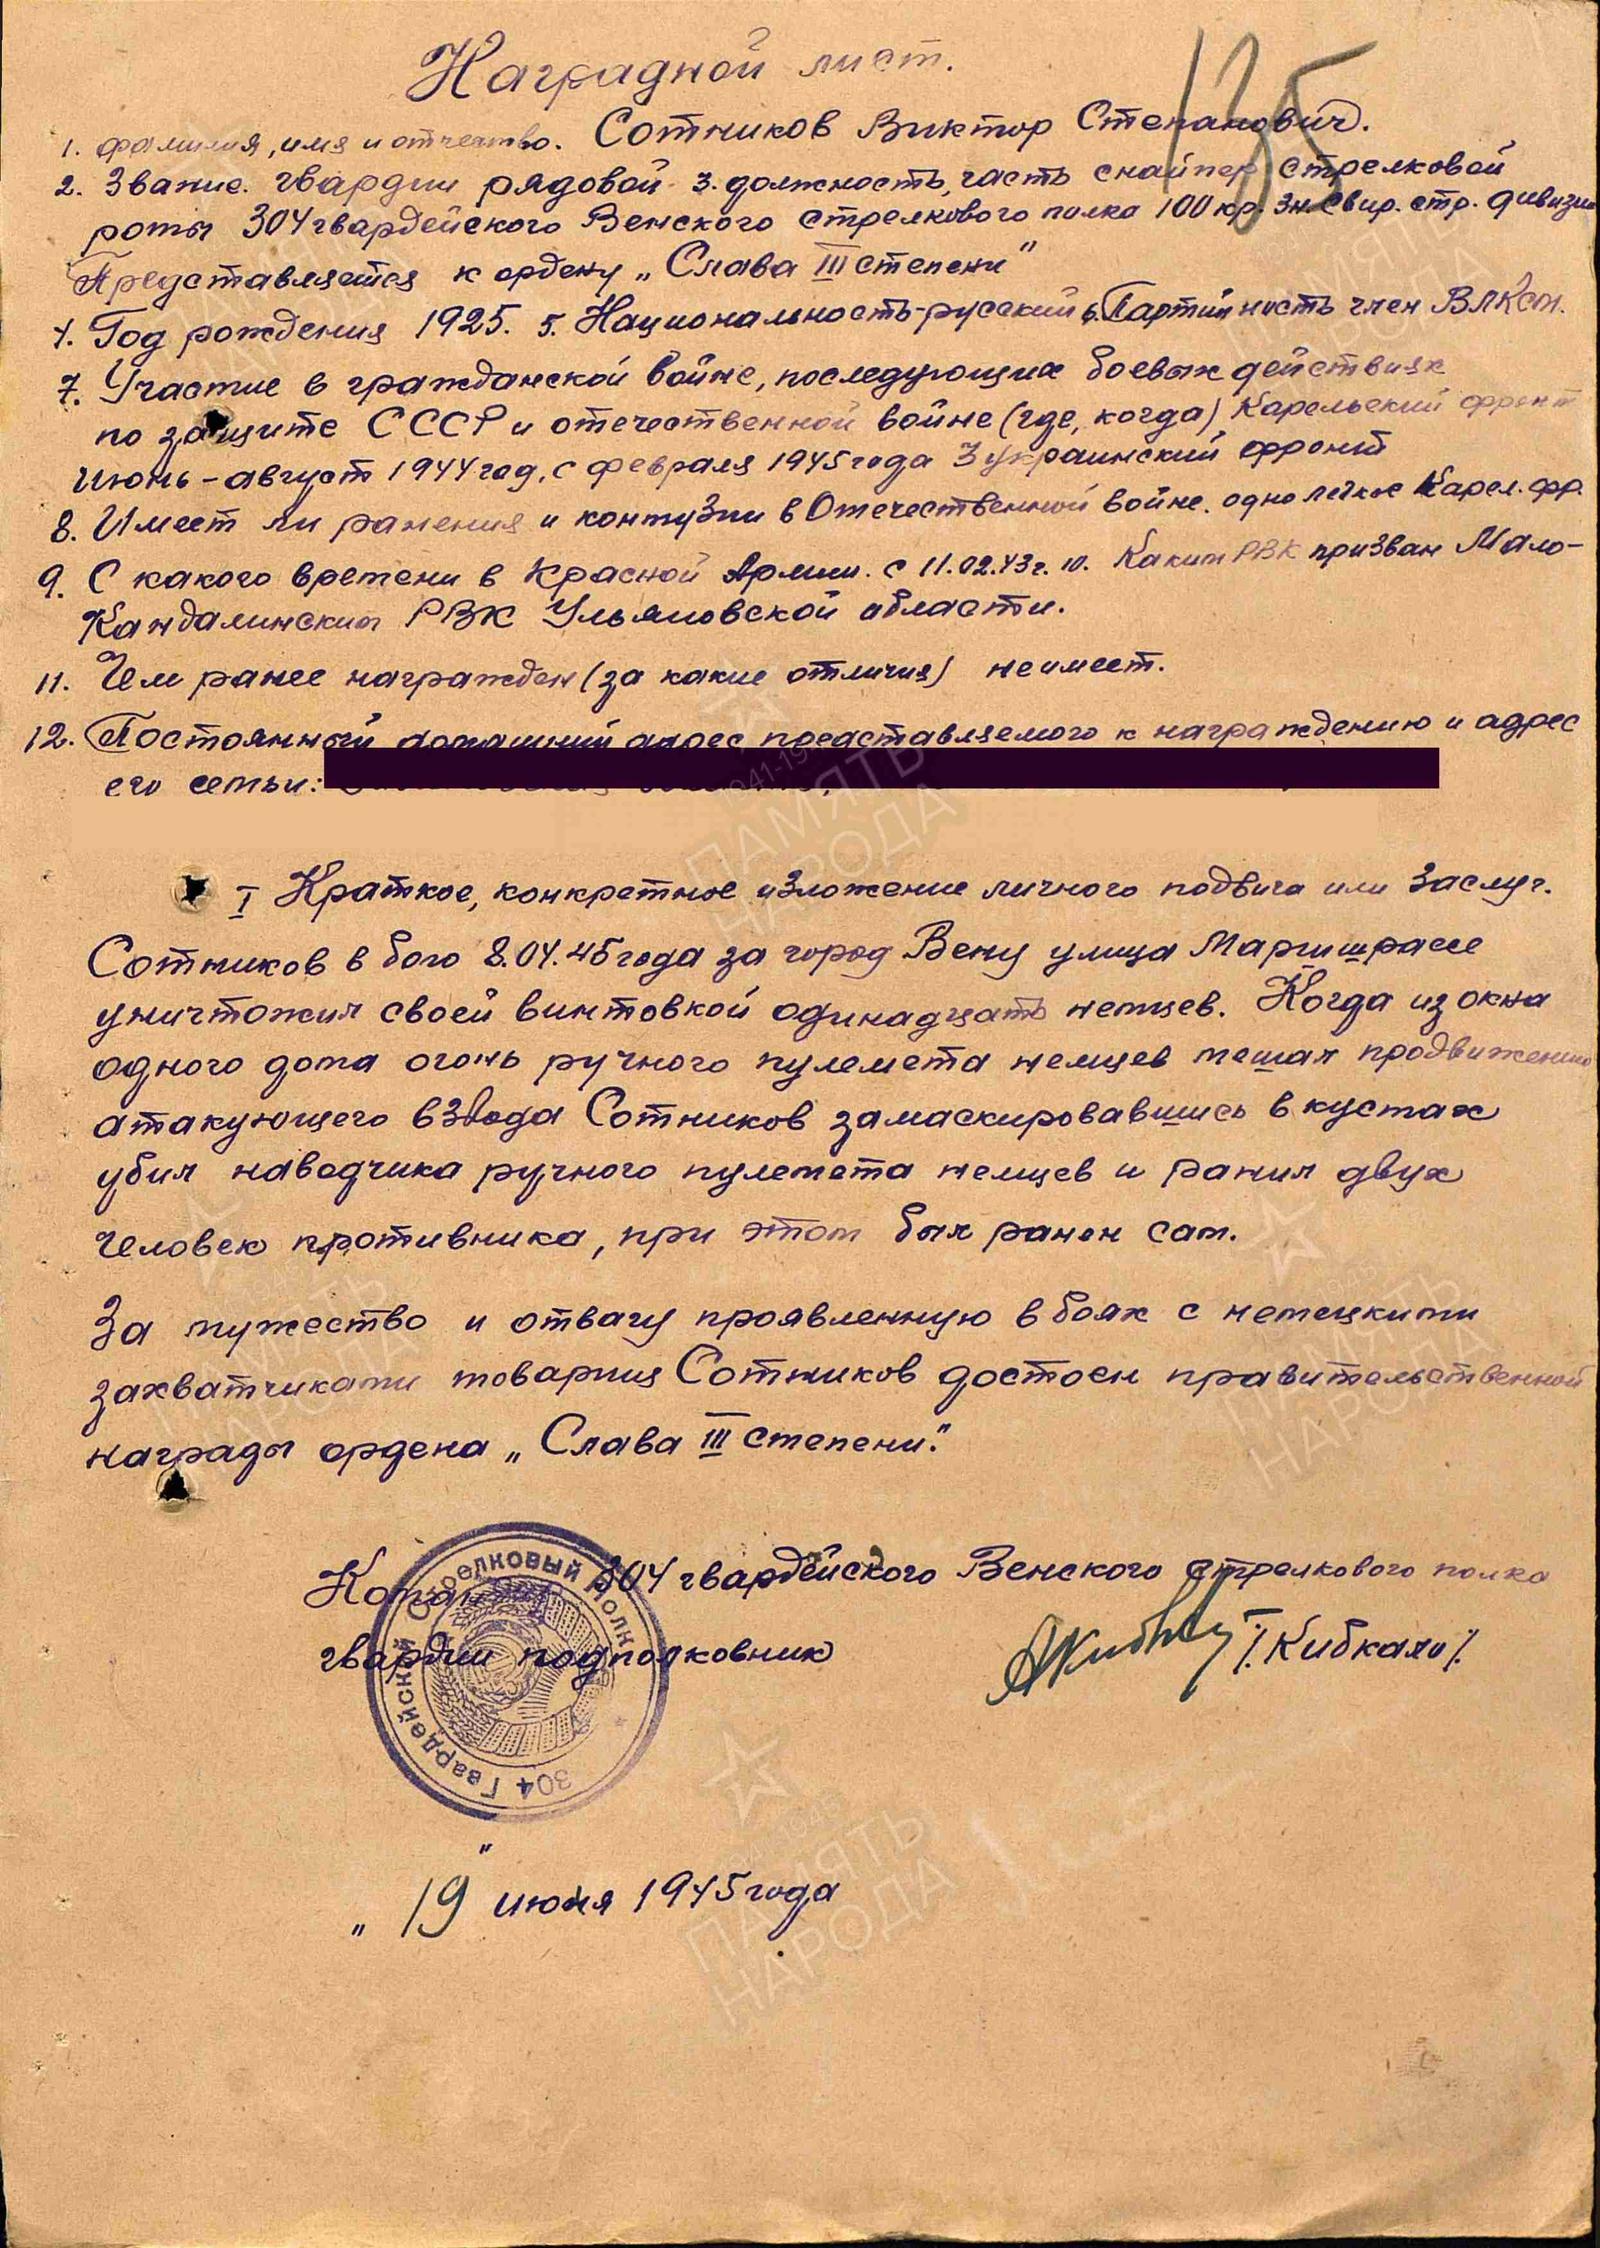 135
Наградной лист.
1. фамилия, имя и отчество. Сотников Виктор Степанович.
2. Звание. гвардии рядовой 3. должность, часть снайпер стрелковой
роты 304 гвардейского Венского стрелкового полка 100 кр. Зн. Свир. стр. дивизии
Представляется к ордену „Слава III степени"
4. Год рождения 1925. 5. Национальность-русский 6. Партийность член ВЛКСМ.
7. Участие в гражданской войне, последующих боевых действиях
по защите СССР и отечественной войне (где, когда) Карельский фронт
Июнь-август 1944 год, с февраля 1945 года 3 украинский фронт
8. Имеет ли ранения и контузии в Отечественной войне. одно легкое Карел. фр.
9. С какого времени в Красной Армии. с 11.02.43 г. 10. Каким РВК призван Мало-
Кандалинским РВК Ульяновской области.
11. Чем ранее награжден (за какие отличия) не имеет.
12. Постоянный домашний адрес представляемого к награждению и адрес
его семьи:
I Краткое, конкретное изложение личного подвига или заслуг.
Сотников в бою 8.04.45 года за город Вену улица Маргиштрассе
уничтожил своей винтовкой одинадцать немцев. Когда из окна
одного дома огонь ручного пулемета немцев мешал продвижению
атакующего взвода Сотников замаскировавшись в кустах
убил наводчика ручного пулемета немцев и ранил двух
человек противника, при этом был ранен сам.
За мужество и отвагу проявленную в боях с немецкими
захватчиками товарищ Сотников достоен правительственной
награды ордена „Слава III степени."
Коман 304 гвардейского Венского стрелкового полка
гвардии подполковник /Кибкало/.
304 Гвардейский Стрелковый Полк
„19" июня 1945 года
1941-1945
ПАМЯТЬ
НАРОДА